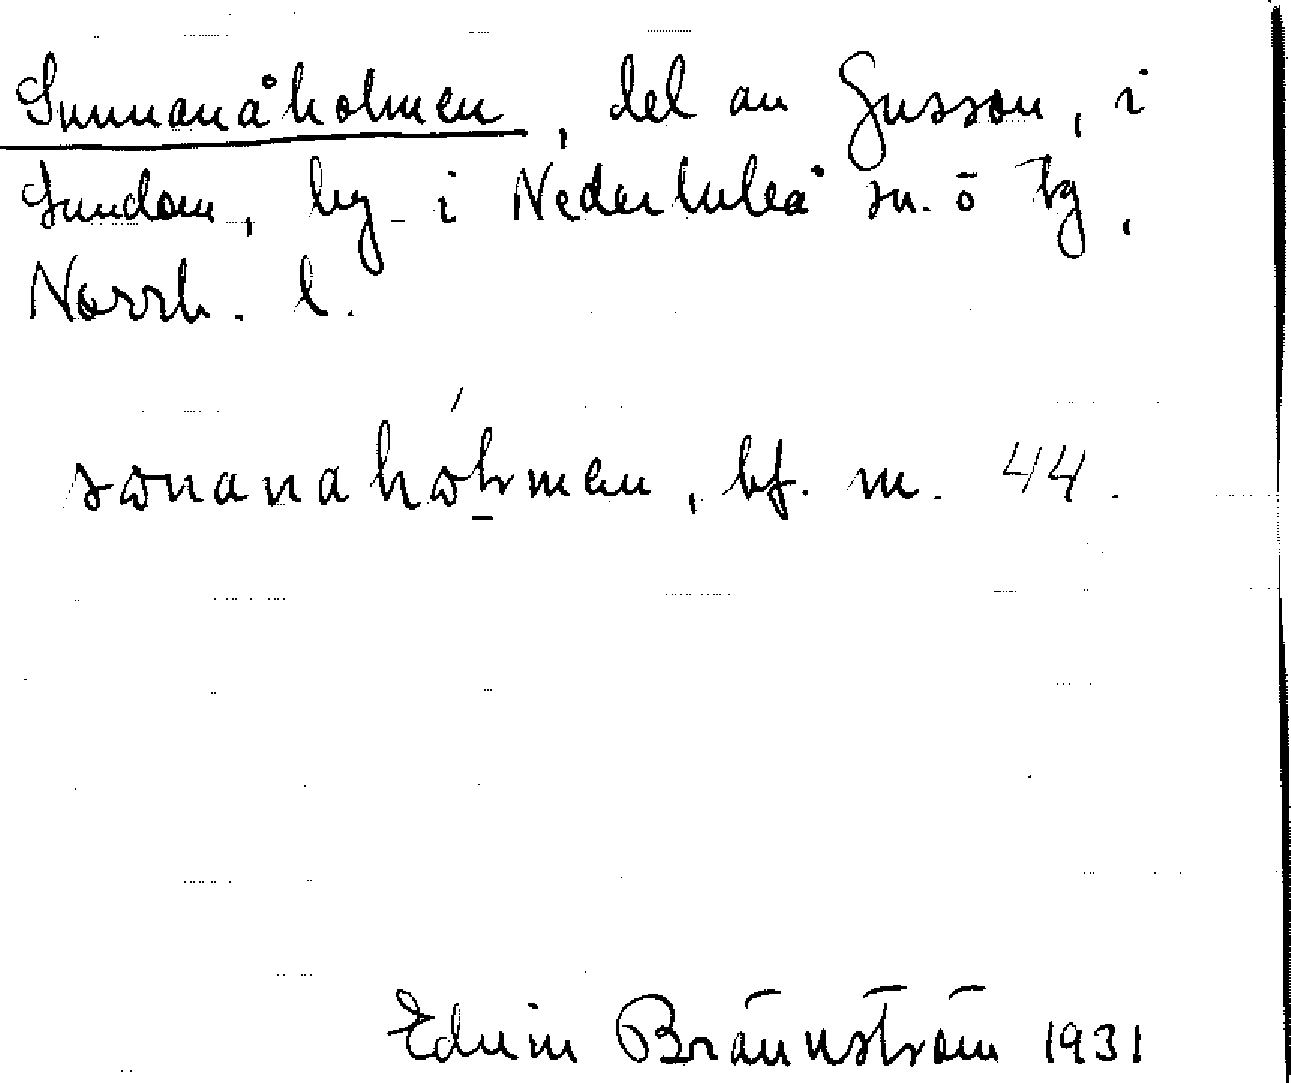 Sunnanåholmen, del av Gussön, i
Sundom, by i Nederluleå sn. o tg,
Norrb. l.
bf. m. 44.
Edvin Brännström 1931